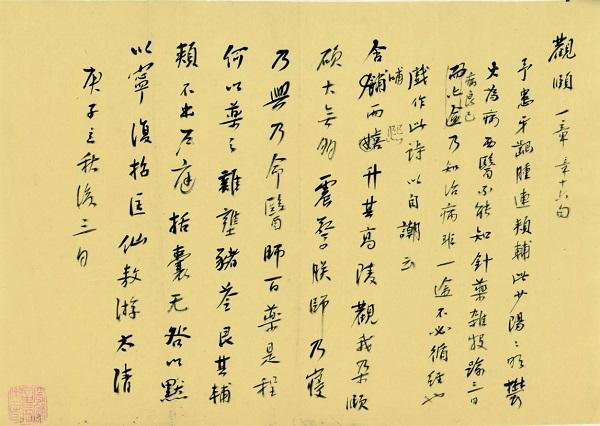 觀頤一章章十六句
予患牙齦腫連頰輔此少陽〻明鬱
火為病西醫不能知針藥雜投踰三日
病良已
乃知治病非一途不必循經也
戲作此詩以自謿云
哺 熙
含而升其高陵觀我朵頤
碩大無朋震驚朕師乃寢
乃興乃命醫師百藥是程
何以藥之雞壅豬苓艮其輔
頰不出戶庭括囊无咎以默
以寧復招匡仙敖游太清
庚子立秋後三日